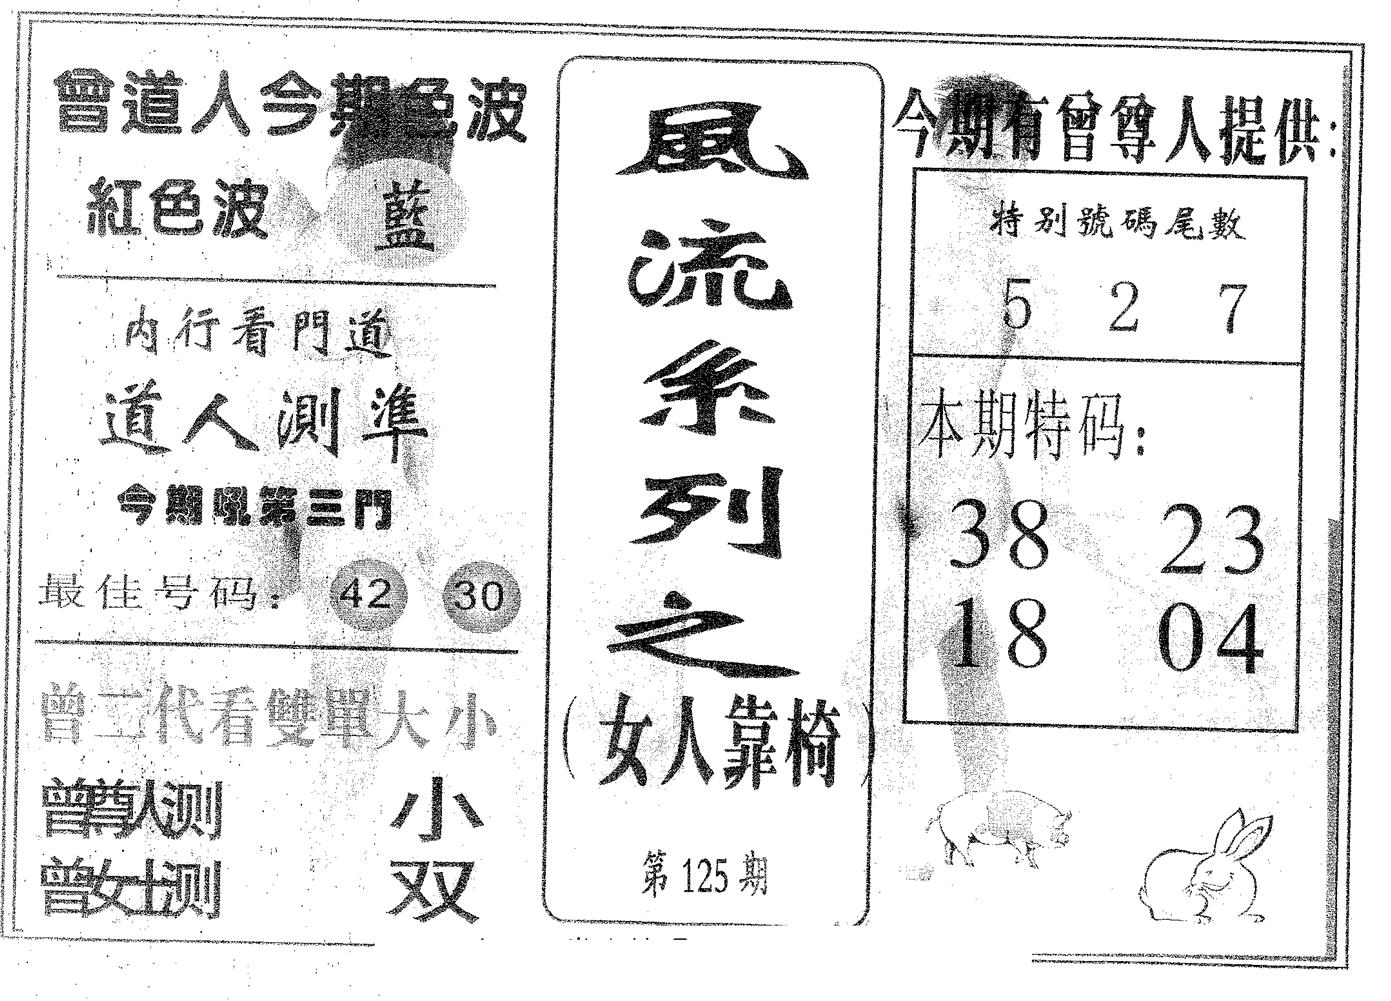 曾道人今期色波
紅色波 藍
内行看門道
道人測準
今期吼第三門
最佳号码: 42 30
曾二代看雙單大小
曾尊人测 小
曾女士测 双
風流系列之
(女人靠椅)
第125期
今期有曾尊人提供:
特别號碼尾數
5 2 7
本期特码:
38 23
18 04